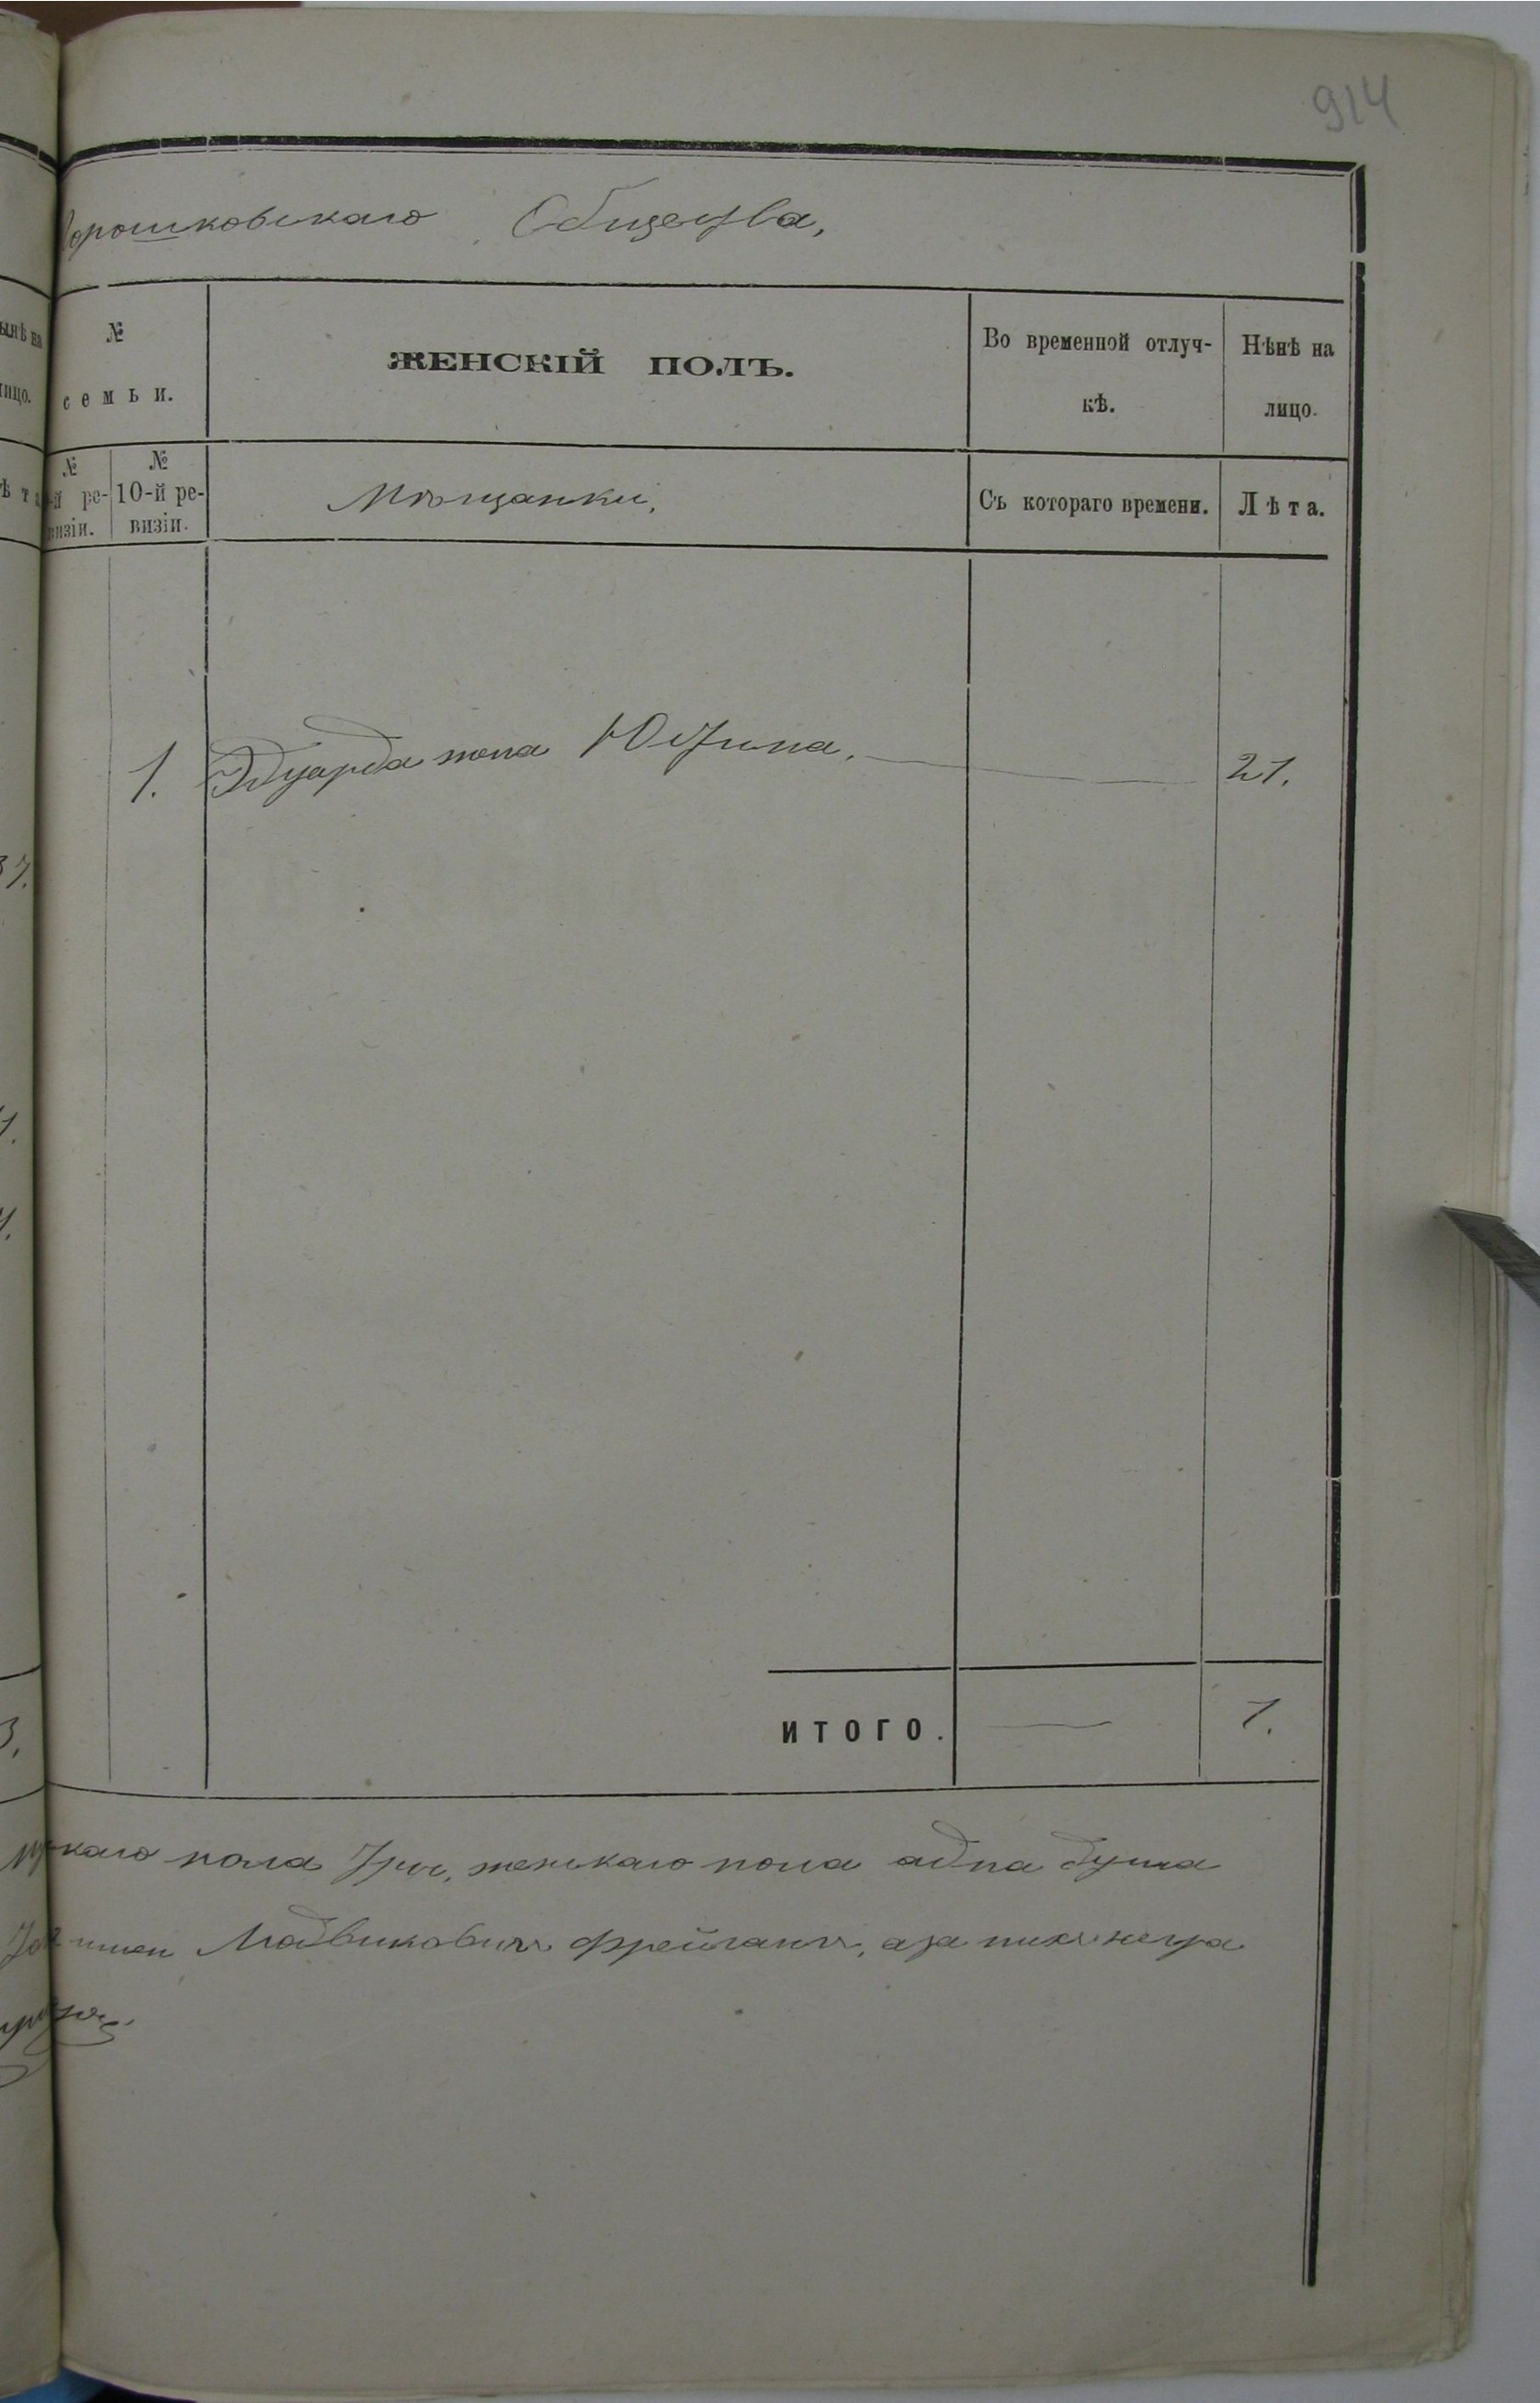 914
Горошковскаго Общества,
ынѣ на
лицо.
№
семьи.
ЖЕНСКІЙ ПОЛЪ.
Во временной отлуч-
кѣ.
Нѣнѣ на
лицо.
№
-й ре-
визіи.
№
10-й ре-
визіи.
Мѣщанки,
Съ котораго времени.
Лѣта.
1. Эдуарда жена Юстина. 21.
37.
1.
3.
ИТОГО. 1.
скаго пола три, женскаго пола одна душа
Фрейганъ, а за него